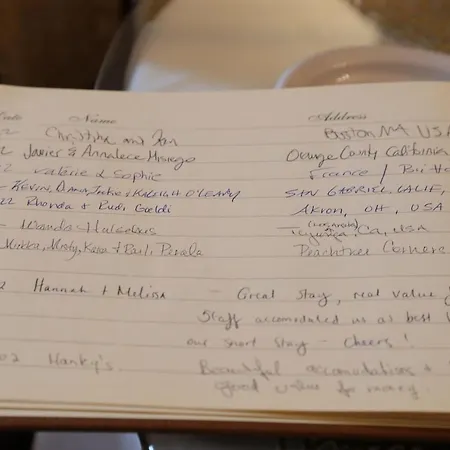 Date Name Address
Christina and Ian Boston MA USA
Javier & Annalece Orange County California
Valerie & Sophie France /
Kevin, Jackie & Kaleigh O'Leary San Gabriel, Calif,
22 Rhonda & Rudi Akron, OH, USA
Wanda Ca, USA
Misty, & Peachtree Corners
Hannah & Melissa - Great stay, real value
Staff accomodated us as best
our short stay - Cheers!
Hanky's. Beautiful accomodations +
good value for money.